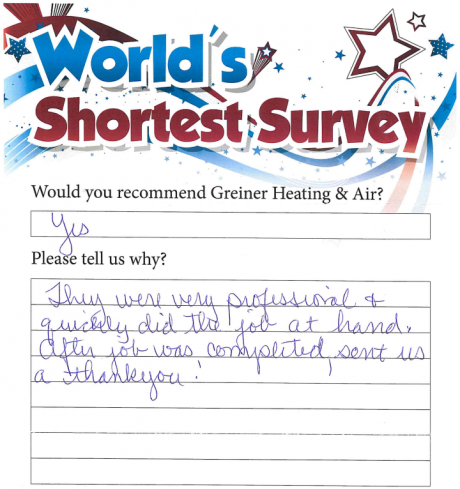 World's
Shortest Survey
Would you recommend Greiner Heating & Air?
Yes
Please tell us why?
They were very professional &
quickly did the job at hand.
After job was completed, sent us
a thankyou!